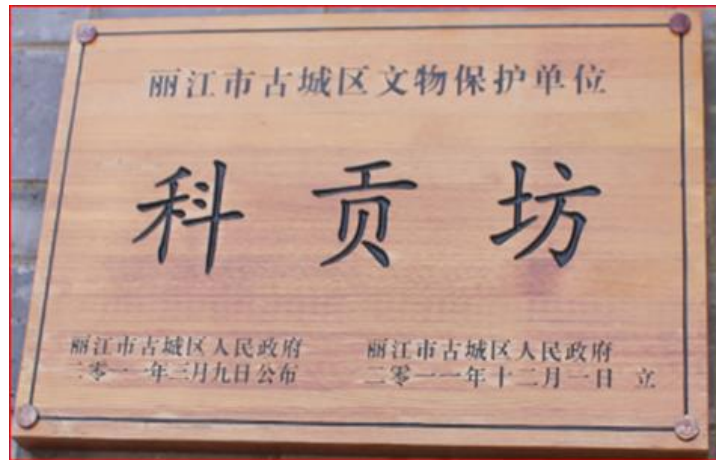 丽江市古城区文物保护单位
科贡坊
丽江市古城区人民政府
二零一一年三月九日公布
丽江市古城区人民政府
二零一一年十二月一日 立